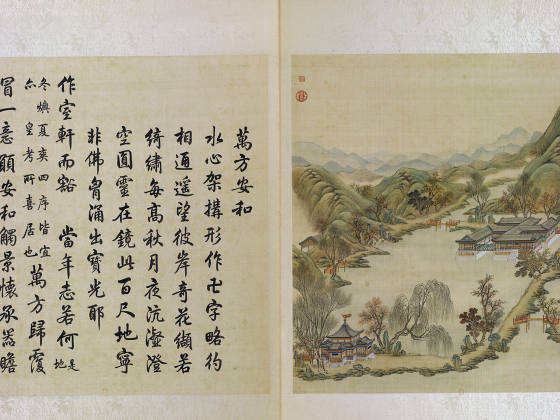 萬方安和
水心架構形作卍字略彴
相通遙望彼岸奇花纈若
綺繡每高秋月夜沆瀣澄
空圓靈在鏡此百尺地寧
非佛胷涌出寶光耶
作室軒而豁 當年志若何 是地
冬燠夏爽四序皆宜
亦 皇考所喜居也 萬方歸覆
冒一意願安和觸景懷承器瞻